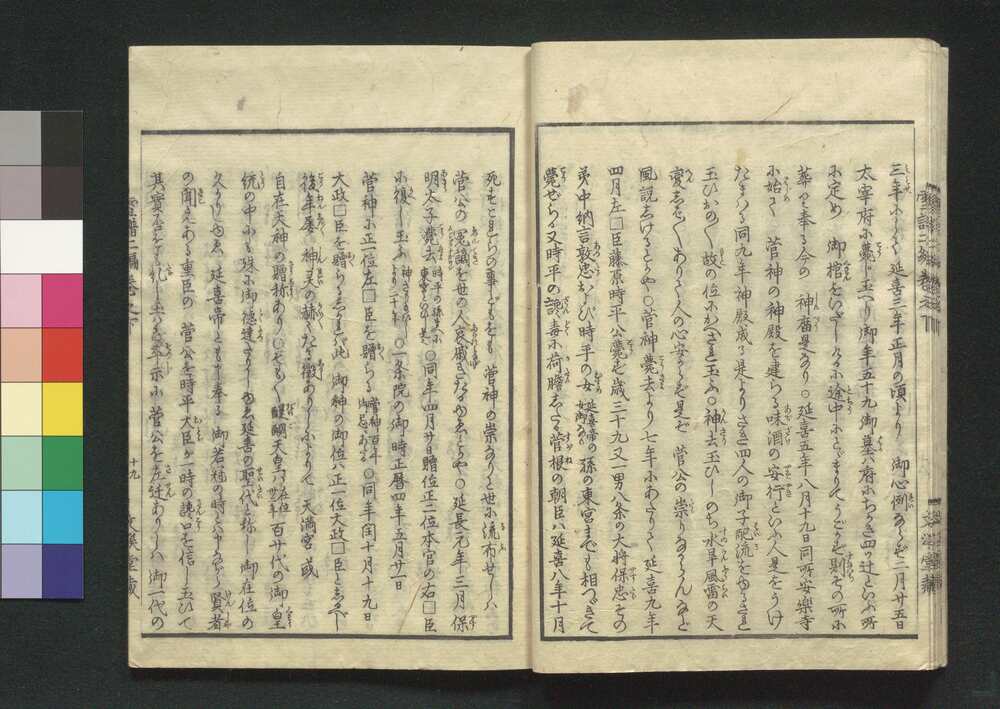 三年にして延喜三年正月の頃より 御心例ならず二月廿五日
太宰府に薨じ玉へり御年五十九御墓ハ府にちかき四ツ辻といふ所
に定め 御棺をいだしけるに途中にとゞまりてうごかず其の所に
葬り奉る今の 神廟是なり○延喜五年八月十九日同所安樂寺
に始て 菅神の神殿を建らる味酒の安行といふ人是をうけ
たまはる同九年神殿成る是よりさき四人の御子配流をゆるされ
玉ひおの〳〵故の位にかへされ玉ふ○神去玉ひしのち水旱風雷の天
変しば〳〵ありて人の心安からず是ぞ 菅公の崇りならんなど
風説しけるとかや○菅神薨去より七年にあたりて延喜九年
四月左□臣藤原時平公薨ず歳三十九又一男八条の大将保忠その
弟中納言敦忠および時平の女 延喜帝の女御なり 孫の東宮までも相つゞきて
薨ぜらる又時平の讒毒に荷膽したる菅根の朝臣ハ延喜八年十月
死すこれらの事どもをも 菅神の祟なりと世に流布せしハ
菅公の冤謫を世の人哀戚きたるゆゑとかや○延長元年三月保
明太子薨去 時平の孫 ○同年四月廿日贈位正二位本官の右□臣
に復し玉ふ 神さりましてより二十年 ○一条院の御時正暦四年五月廿一日
菅神に正一位左□臣を贈らる ○同年閏十月十九日
大政□臣を贈らる 此 御神の御位ハ正一位大政□臣としるべし
後年屡 神灵の赫々たる徴ありしによりて 天満宮 或
自在天神の贈称あり○そも〳〵醍醐天皇ハ 百廿代の御皇
統の中にも殊に御徳達ましゆゑ延喜の聖代と称し御在位の
久りけるゆゑ 延喜帝とも申し奉る御若冠の時とハ申ながら賢者
の聞えある重臣の 菅公を時平大臣が一時の讒口を信じ玉ひて
其實否をも糺し玉ハず卒示に菅公を左迁ありしハ 御一代の
十九